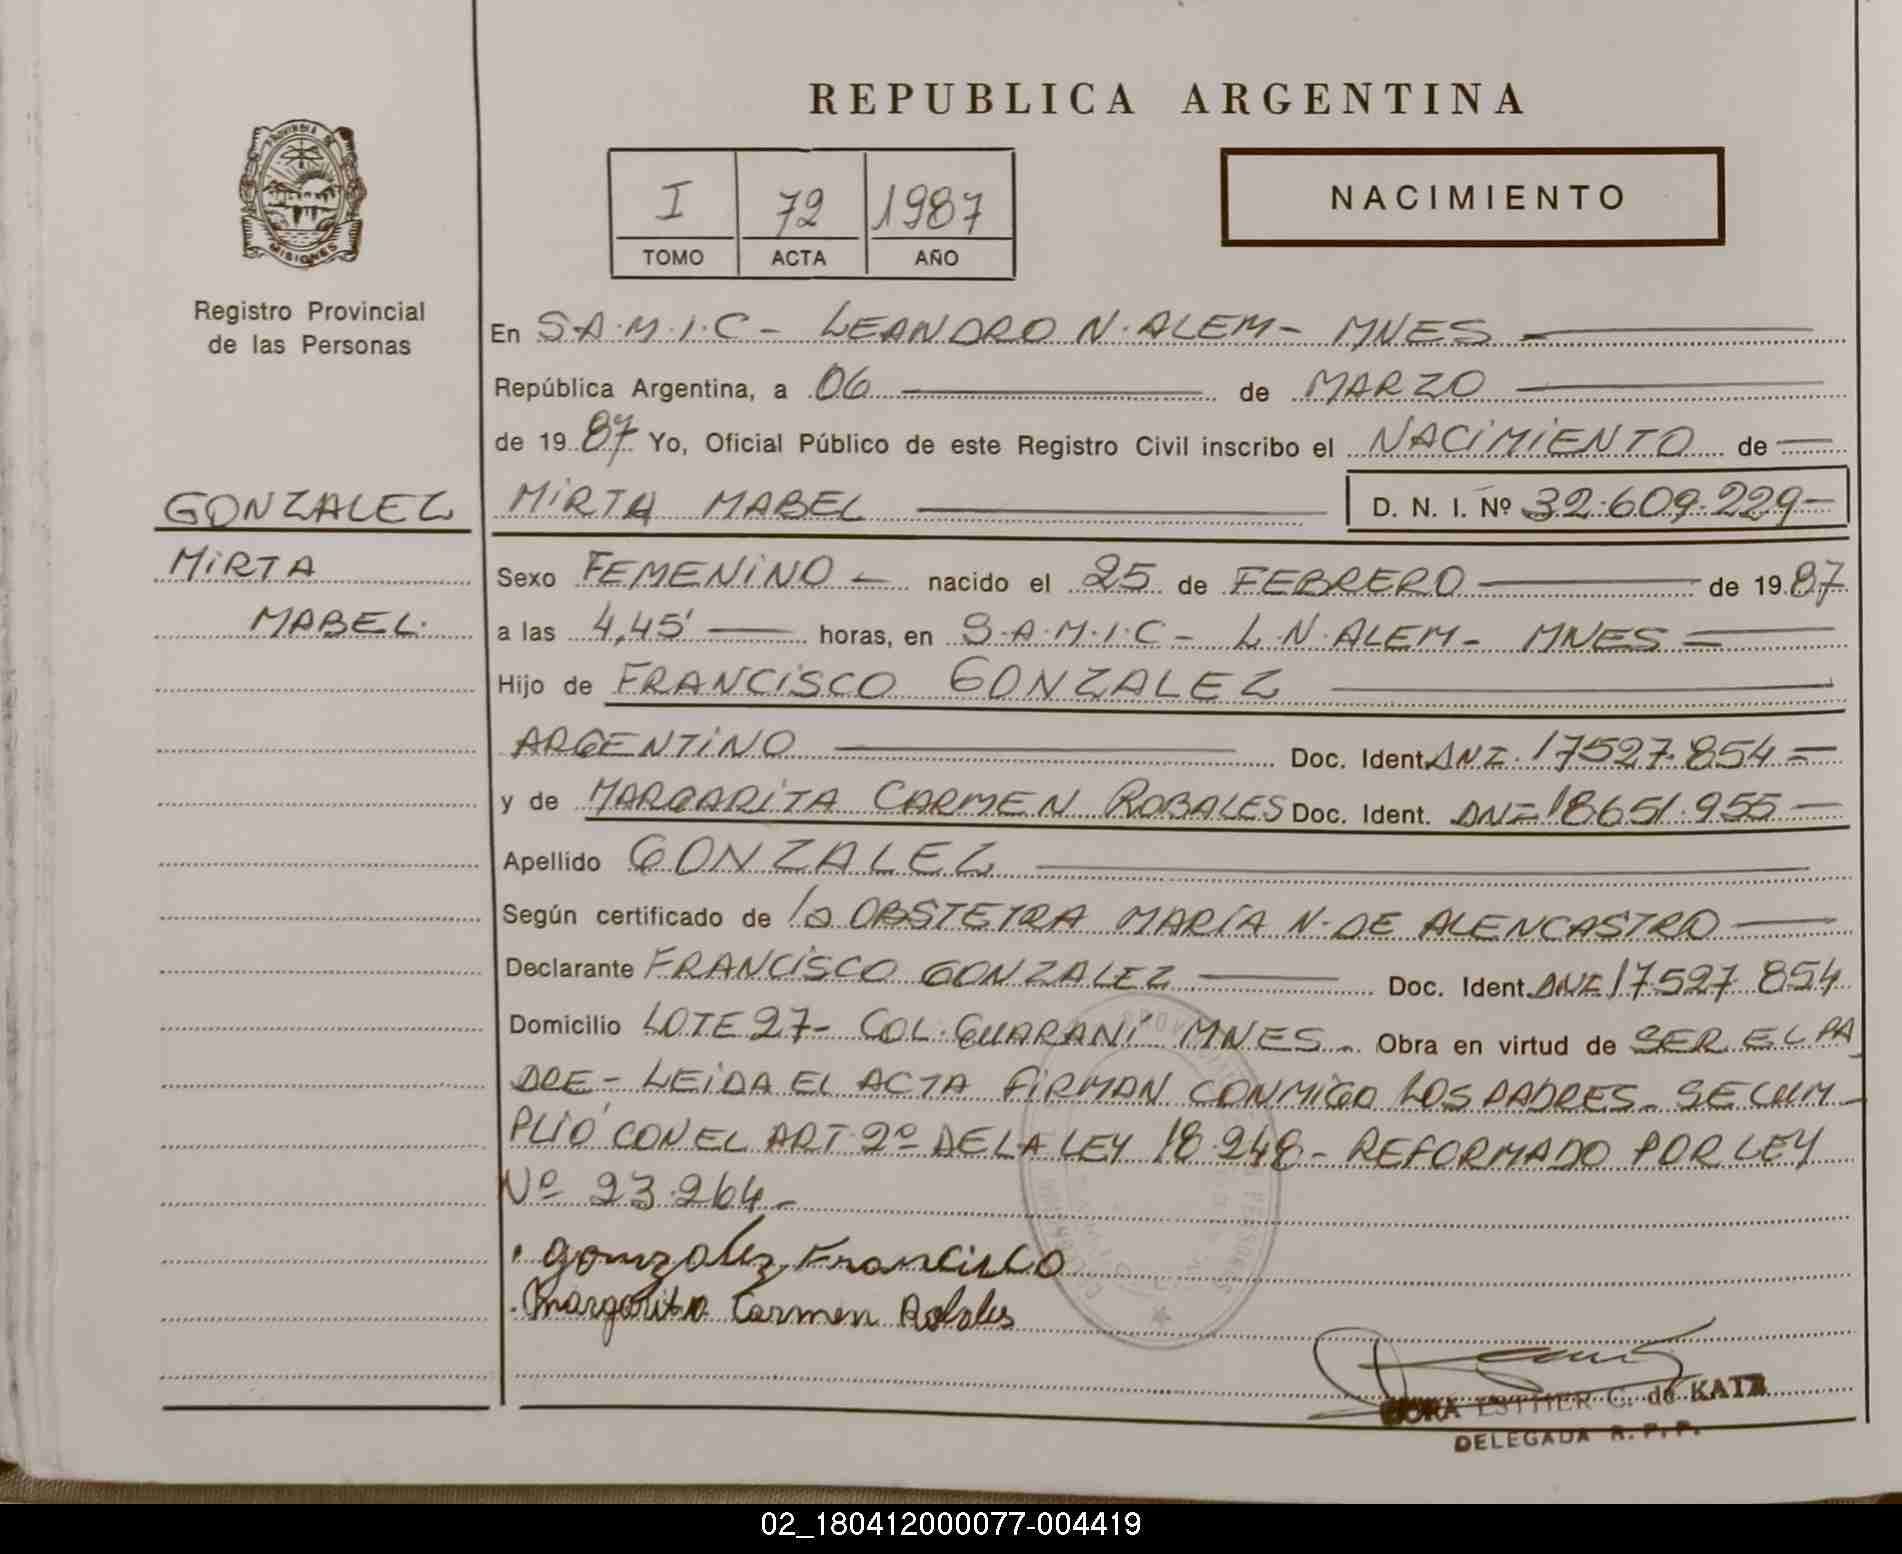 REPUBLICA ARGENTINA
PROVINCIA DE
MISIONES
Registro Provincial
de las Personas
I 72 1987
TOMO ACTA AÑO
NACIMIENTO
En S.A.M.I.C - LEANDRO N. ALEM - MNES
República Argentina, a 06 de MARZO
de 1987 Yo, Oficial Público de este Registro Civil inscribo el NACIMIENTO de
GONZALEZ
MIRTA
MABEL.
MIRTA MABEL D. N. I. Nº 32.609.229-
Sexo FEMENINO - nacido el 25 de FEBRERO de 1987
a las 4,45' horas, en S.A.M.I.C - L.N. ALEM - MNES
Hijo de FRANCISCO GONZALEZ
ARGENTINO Doc. Ident. DNI. 17527.854
y de MARGARITA CARMEN ROBALES Doc. Ident. DNI 18651.955
Apellido GONZALEZ
Según certificado de la OBSTETRA MARÍA N. DE ALENCASTRO
Declarante FRANCISCO GONZALEZ Doc. Ident. DNI 17527 854
Domicilio LOTE 27- COL. GUARANI MNES. Obra en virtud de SER EL PA
DRE - LEIDA EL ACTA FIRMAN CONMIGO LOS PADRES. SE CUM
PLIÓ CON EL ART. 2º DE LA LEY 18.248 - REFORMADO POR LEY
Nº 23.264.-
Gonzalez Francisco
Margarita Carmen Robales
ESTHER C. de KATZ
DELEGADA R. P. P.
02_180412000077-004419